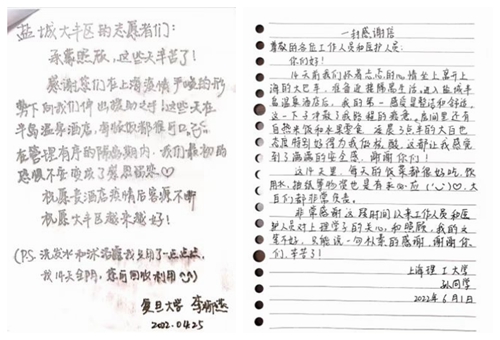 盐城大丰区的志愿者们：
承蒙照顾，这些天辛苦了！
感谢您们在上海疫情严峻的形
势下向我们伸出援助之手！这些天在
半岛温泉酒店，每顿饭都很可口
在管理有序的隔离期内，我们最初的
祝愿贵酒店疫情后客源不断
祝愿大丰区越来越好！
(P.S. 洗发水和沐浴露我只用了一点点
复旦大学
2022.04.25
一封感谢信
尊敬的各位工作人员和医护人员：
你们好！
14天前我们怀着忐忑的心情坐上离开上
海的大巴车，准备迎接隔离生活。进入盐城半
岛温泉酒店后，我的第一感受是整洁和舒适，
这一下子冲散了我路程的疲惫。房间里还有
自热米饭和水果零食，凌晨了点半的大白也
态度特别好得为我们做核酸，这都让我感受
到了满满的安全感，谢谢你们！
这14天里，每天的饭菜都很好吃，饮
用水、抽纸等物资也是有求必应(^_^)♡，大
白们都非常负责。
非常感谢这段时间以来工作人员和医
护人员对上理学子的关心和照顾，我的文
笔不好，只能说一句朴素的感谢，谢谢你
们，辛苦了！
上海理工大学
孙同学
2022年6月1日